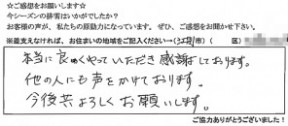 ☆ご感想をお願いします☆
今シーズンの排雪はいかがでしたか？
お客様の声が、私たちの原動力になっています。ぜひ、ご感想をお聞かせ下さい。
※差支えなければ、お住まいの地域をご記入ください→(江別市)(　　区)
本当に良くやっていただき感謝しております。
他の人にも声をかけております。
今後共よろしくお願いします。
ご協力ありがとうございました！